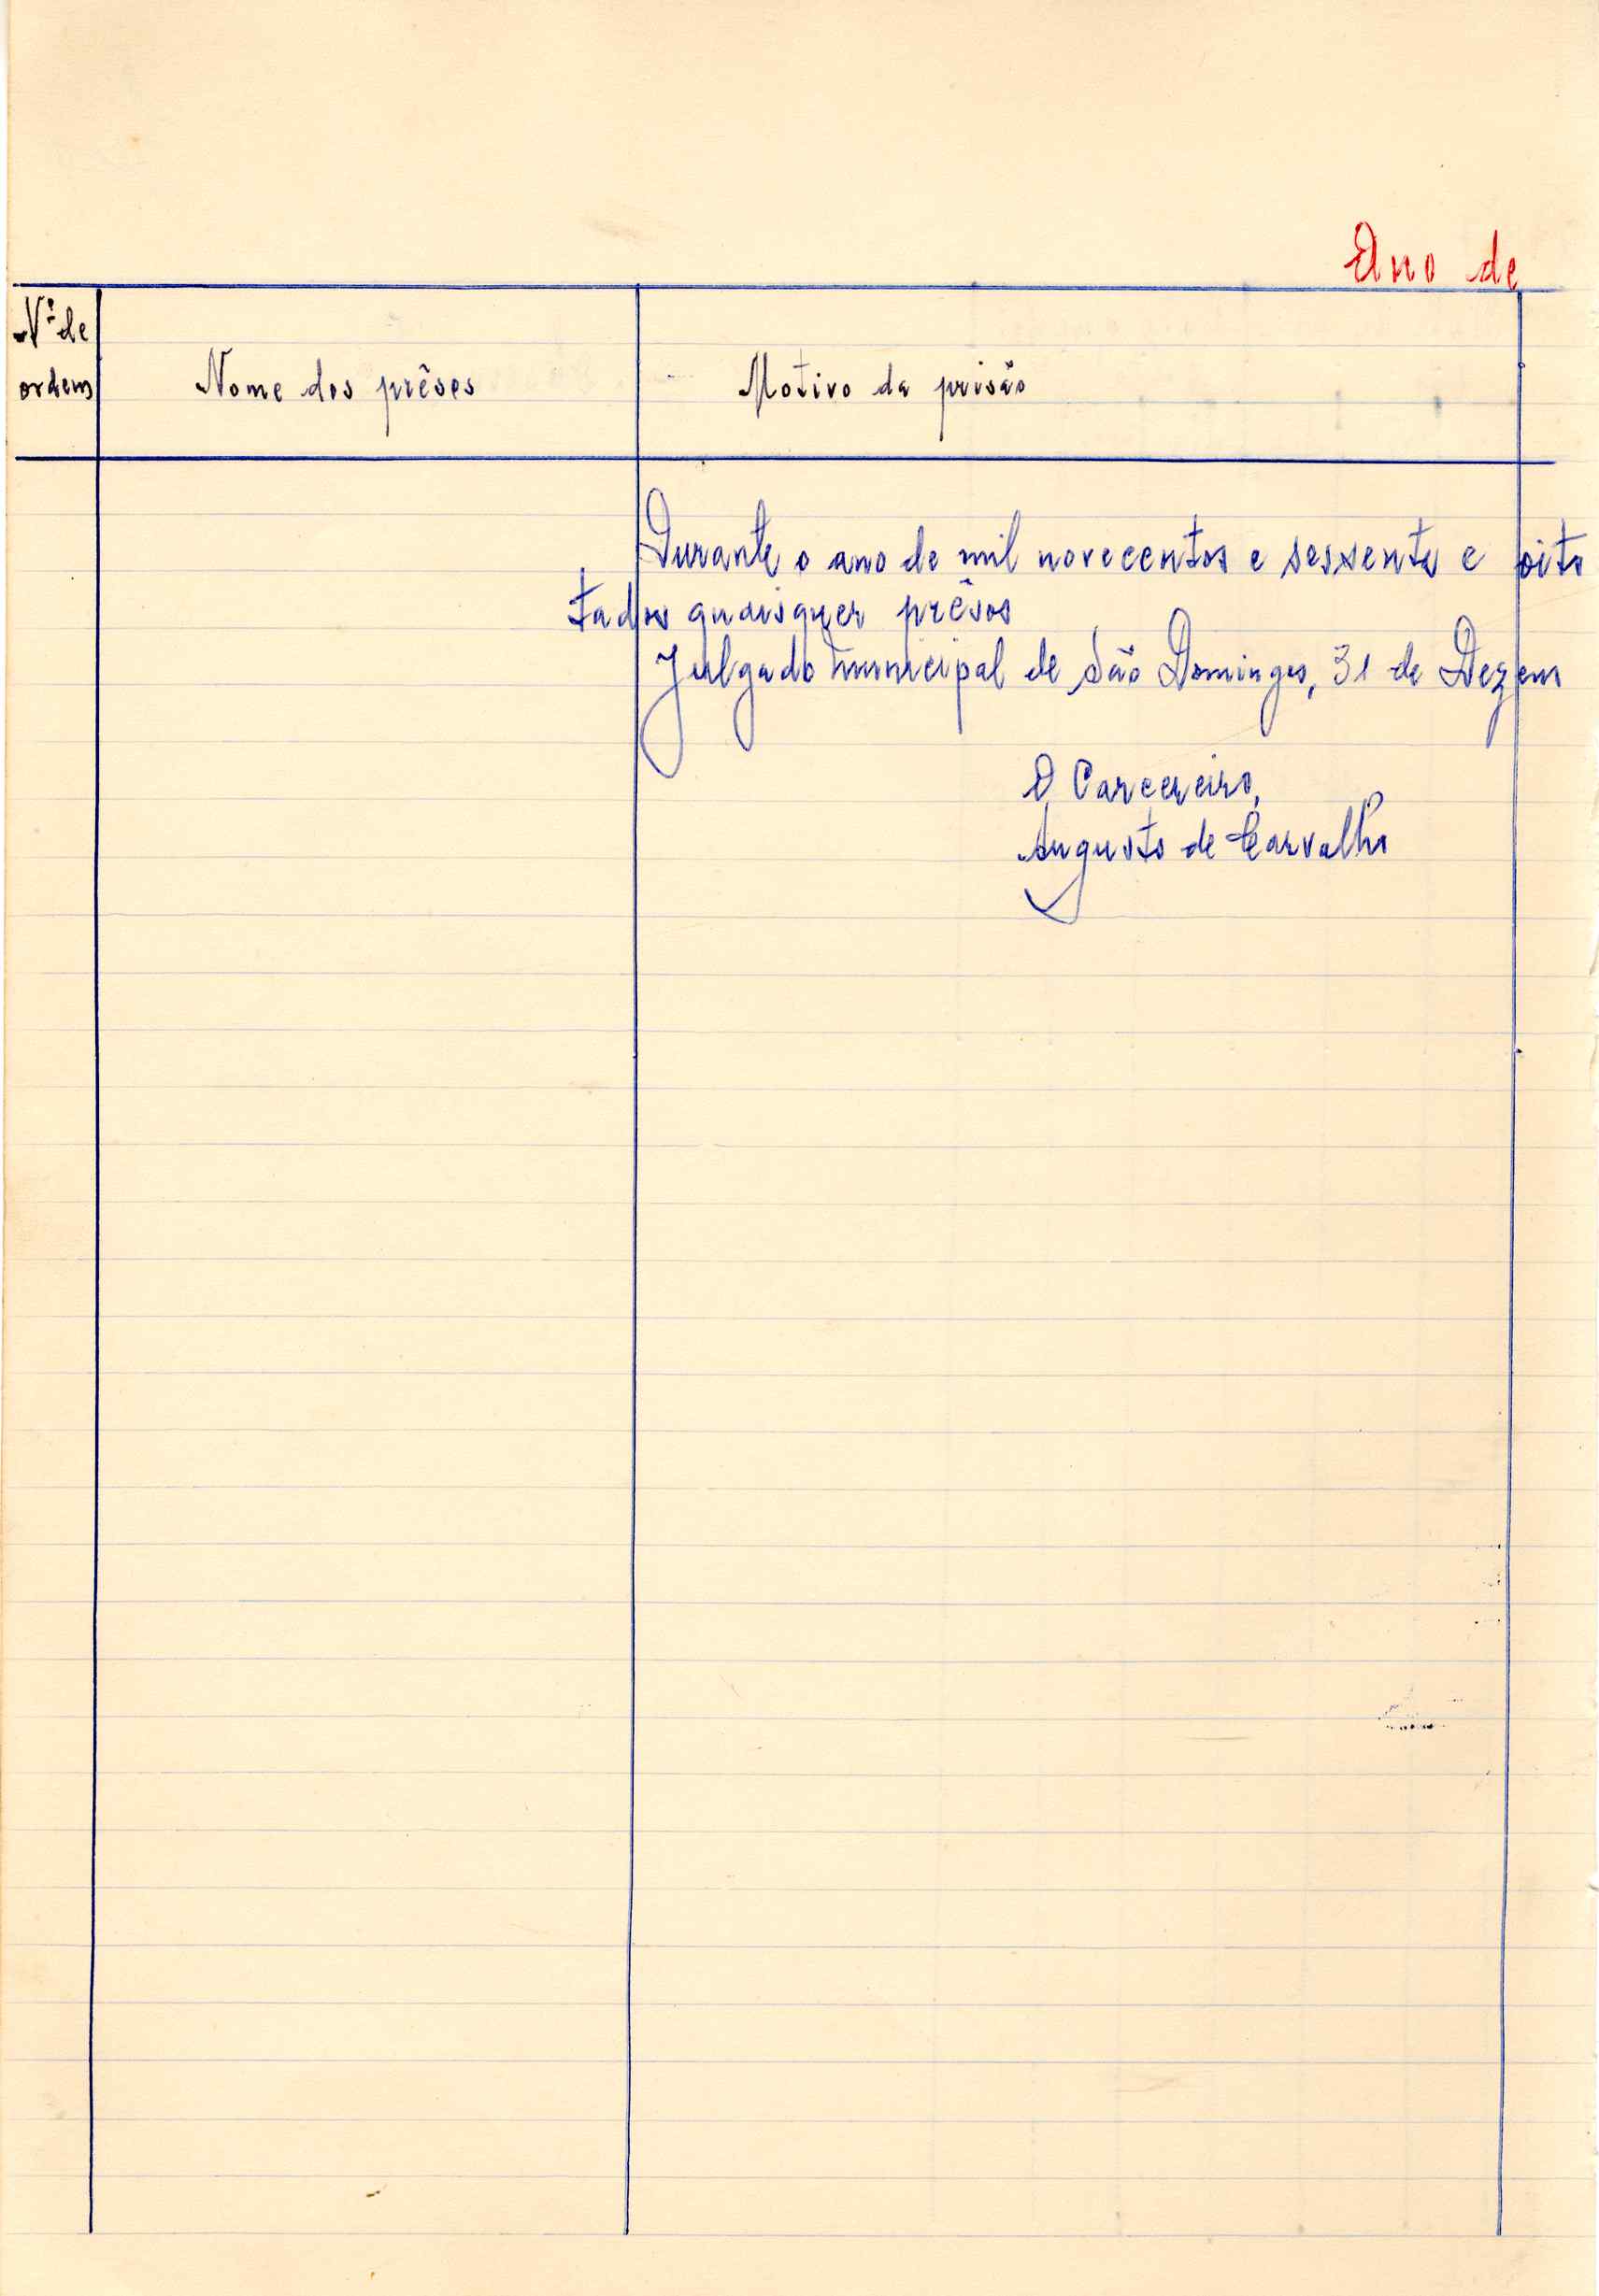 Ano de
Nº de
ordem
Nome dos prêsos
Motivo da prisão
Durante o ano de mil novecentos e sessenta e oito
tados quaisquer prêsos
Julgado Municipal de São Domingos, 31 de Dezem
O Carcereiro,
Augusto de Carvalho